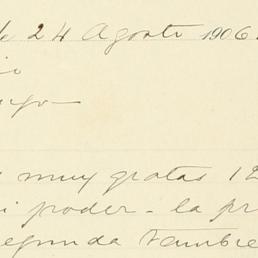 24 Agosto 1906
muy gratas 12
poder - la pr
segunda tambie